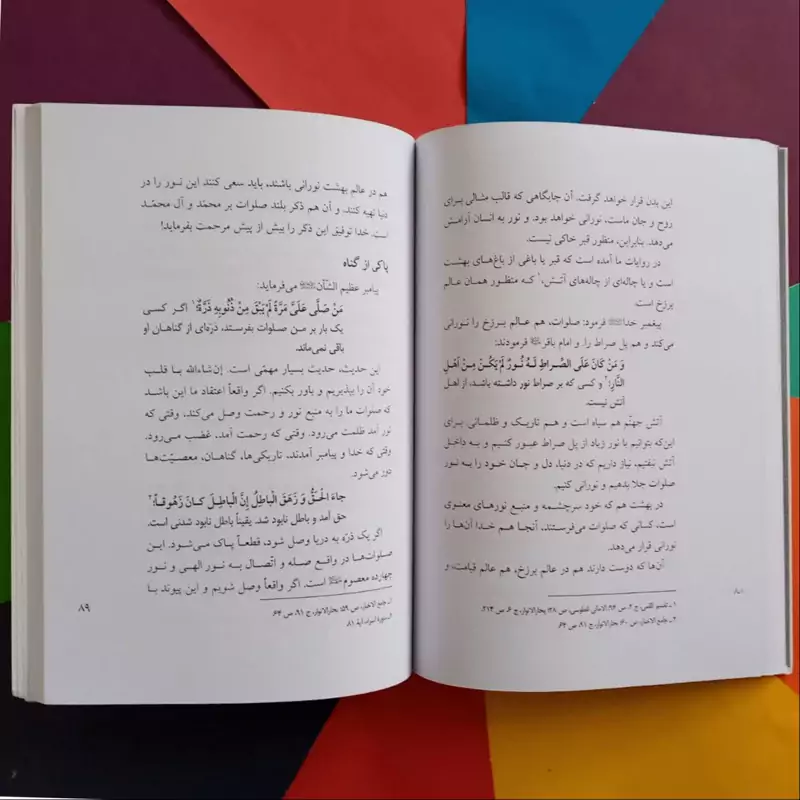 این بدن قرار خواهد گرفت. آن جایگاهی که قالب مثالی برای
روح و جان ماست، نورانی خواهد بود. و نور به انسان آرامش
می‌دهد. بنابراین، منظور قبر خاکی نیست.
در روایات ما آمده است که قبر یا باغی از باغ‌های بهشت
است و یا چاله‌ای از چاله‌های آتش،۱ که منظور همان عالم
برزخ است.
پیغمبر خدا ﷺ فرمود: صلوات، هم عالم برزخ را نورانی
می‌کند و هم پل صراط را. و امام باقر فرمودند:
وَ مَنْ کَانَ عَلَی الصِّرَاطِ لَهُ نُورٌ لَمْ یَکُنْ مِنْ أَهْلِ
النَّارِ؛۲ و کسی که بر صراط نور داشته باشد، از اهل
آتش نیست.
آتش جهنّم هم سیاه است و هم تاریک و ظلمانی. برای
این‌که بتوانیم با نور زیاد از پل صراط عبور کنیم و به داخل
آتش نیفتیم، نیاز داریم که در دنیا، دل و جان خود را به نور
صلوات جلا بدهیم و نورانی کنیم.
در بهشت هم که خود سرچشمه و منبع نورهای معنوی
است، کسانی که صلوات می‌فرستند، آنجا هم خدا آن‌ها را
نورانی قرار می‌دهد.
آن‌ها که دوست دارند هم در عالم برزخ، هم عالم قیامت و
۱ـ تفسیر القمی، ج ۲، ص ۹۴؛ الامالی للطوسی، ص ۲۸؛ بحارالانوار، ج ۶، ص ۲۱۴.
۲ـ جامع الاخبار، ص ۶۰؛ بحارالانوار، ج ۹۱، ص ۶۴.
هم در عالم بهشت نورانی باشند، باید سعی کنند این نور را در
دنیا تهیه کنند. و آن هم ذکر بلند صلوات بر محمّد و آل محمّد
است. خدا توفیق این ذکر را بیش از پیش مرحمت بفرماید!
پاکی از گناه
پیامبر عظیم الشأن ﷺ می‌فرماید:
مَنْ صَلَّی عَلَیَّ مَرَّةً لَمْ یَبْقَ مِنْ ذُنُوبِهِ ذَرَّةٌ؛۱ اگر کسی
یک بار بر من صلوات بفرستد، ذرّه‌ای از گناهان او
باقی نمی‌ماند.
این حدیث، حدیث بسیار مهمّی است. إن‌شاءالله با قلب
خود آن را بپذیریم و باور بکنیم. اگر واقعاً اعتقاد ما این باشد
که صلوات ما را به منبع نور و رحمت وصل می‌کند، وقتی که
نور آمد ظلمت می‌رود. وقتی که رحمت آمد، غضب می‌رود.
وقتی که خدا و پیامبر آمدند، تاریکی‌ها، گناهان، معصیّت‌ها
دور می‌شود.
جاءَ الْحَقُّ وَ زَهَقَ الْباطِلُ إِنَّ الْباطِلَ کانَ زَهُوقاً؛۲
حق آمد و باطل نابود شد. یقیناً باطل نابود شدنی است.
اگر یک ذرّه به دریا وصل شود، قطعاً پاک می‌شود. این
صلوات‌ها در واقع صله و اتّصال به نور الهی و نور
چهارده معصوم است. اگر واقعاً وصل شویم و این پیوند با
۱ـ جامع الاخبار، ص ۵۹؛ بحارالانوار، ج ۹۱، ص ۶۴.
۲ـ سورۀ اسراء، آیۀ ۸۱.
۸۹